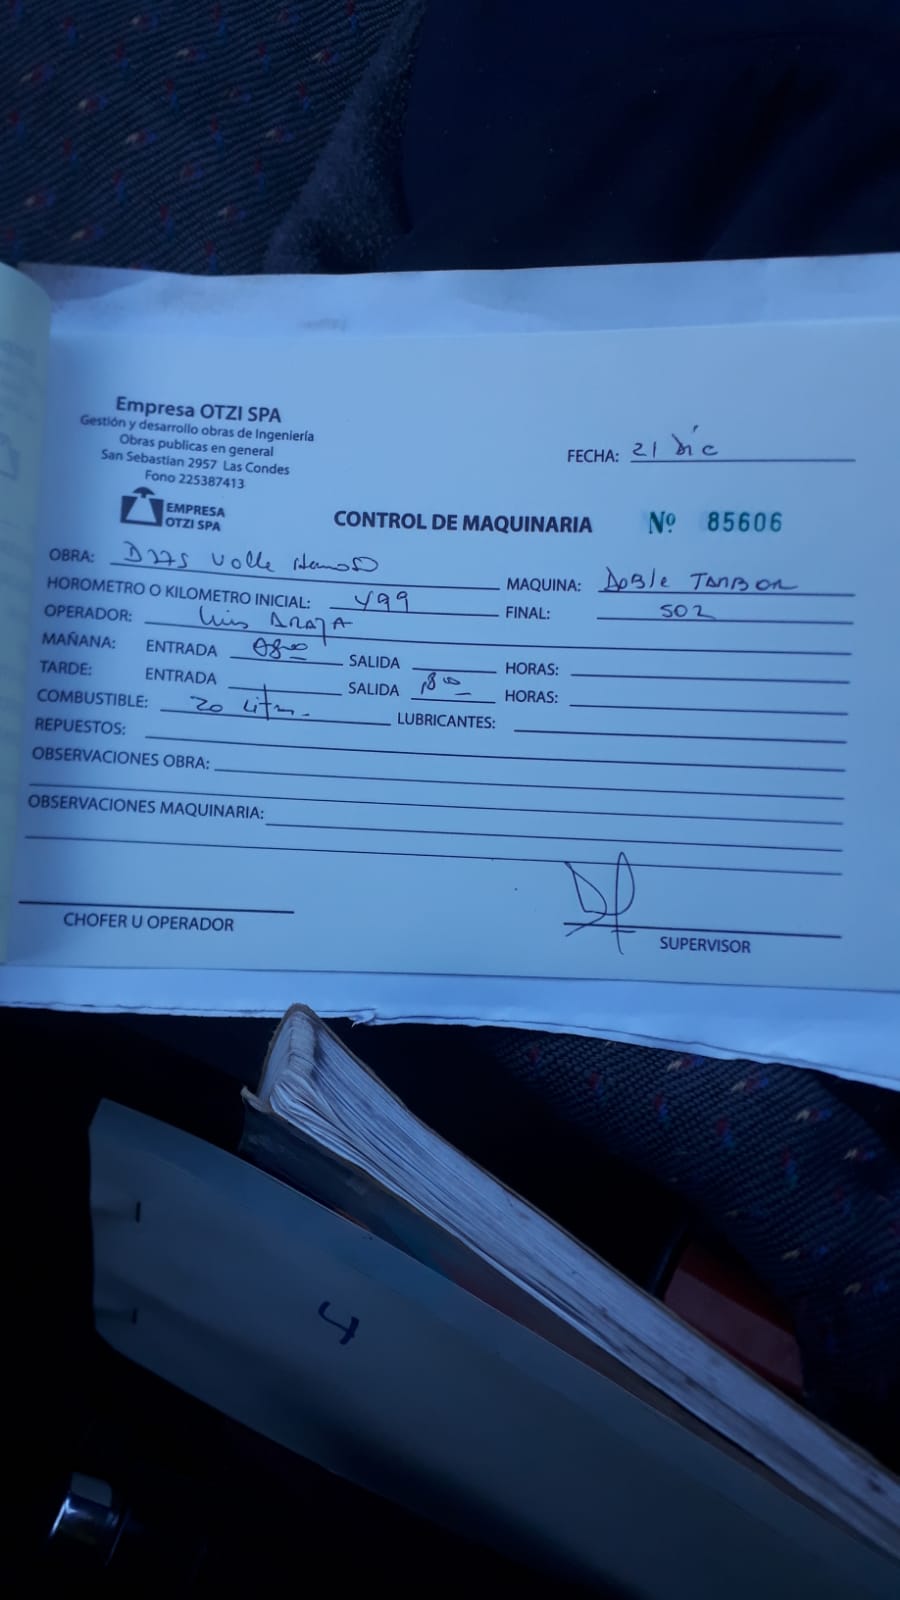 Empresa OTZI SPA
Gestión y desarrollo obras de Ingeniería
Obras publicas en general
San Sebastian 2957 Las Condes
Fono 225387413
EMPRESA
OTZI SPA
FECHA: 21 Dic
CONTROL DE MAQUINARIA Nº 85606
OBRA: Valle Hermoso
MAQUINA: Doble Tambor
HOROMETRO O KILOMETRO INICIAL: 499
FINAL: 502
OPERADOR: Luis Araya
MAÑANA: ENTRADA 0800 SALIDA HORAS:
TARDE: ENTRADA SALIDA 1800 HORAS:
COMBUSTIBLE: 20 LUBRICANTES:
REPUESTOS:
OBSERVACIONES OBRA:
OBSERVACIONES MAQUINARIA:
CHOFER U OPERADOR
SUPERVISOR
4